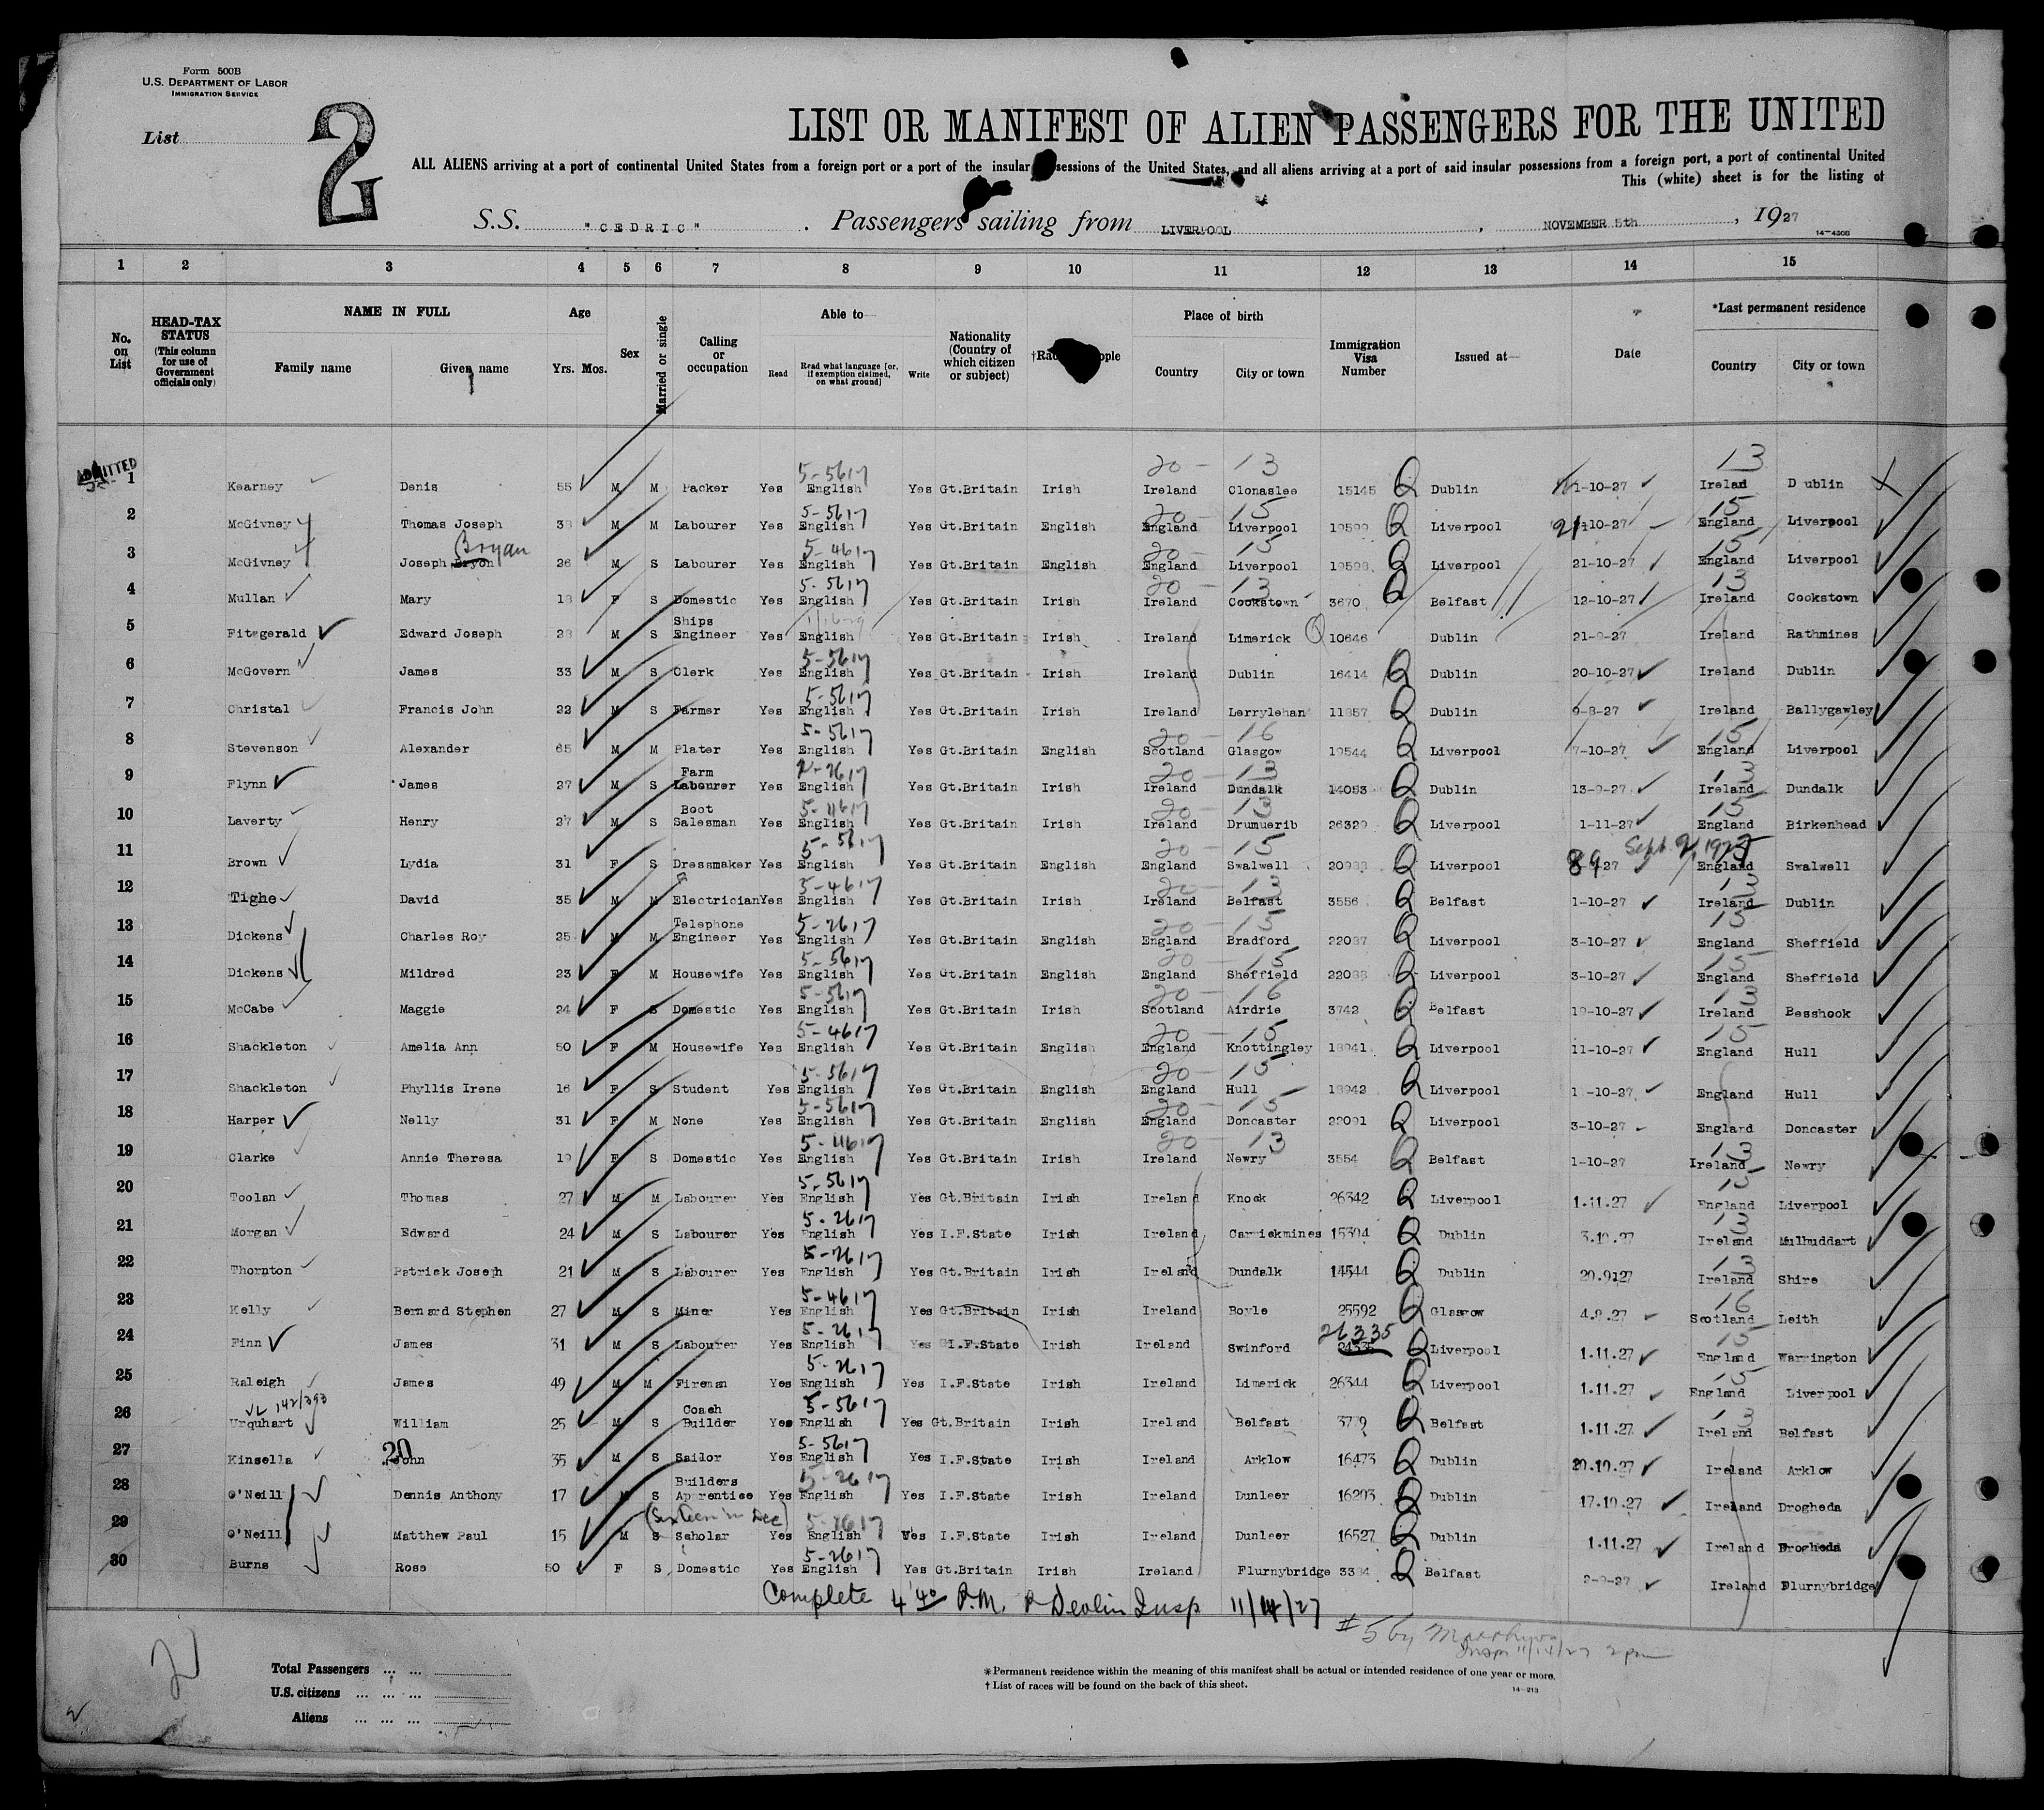 Form 500B
U.S. DEPARTMENT OF LABOR
IMMIGRATION SERVICE
List
2
LIST OR MANIFEST OF ALIEN PASSENGERS FOR THE UNITED
ALL ALIENS arriving at a port of continental United States from a foreign port or a port of the insular sessions of the United States, and all aliens arriving at a port of said insular possessions from a foreign port, a port of continental United
This (white) sheet is for the listing of
S.S. "CEDRIC" . Passengers sailing from LIVERPOOL , NOVEMBER 5th , 1927
1 2 3 4 5 6 7 8 9 10 11 12 13 14 15
No. on List
HEAD-TAX STATUS (This column for use of Government officials only)
NAME IN FULL
Family name Given name
Age
Yrs. Mos.
Sex
Married or single
Calling or occupation
Able to—
Read
Read what language (or, if exemption claimed, on what ground)
Write
Nationality (Country of which citizen or subject)
Place of birth
Country City or town
Immigration Visa Number
Issued at—
Date
*Last permanent residence
Country City or town
ADMITTED
1 Kearney Denis 55 M M Packer Yes 5-5617 English Yes Gt.Britain Irish 20- 13 Ireland Clonaslee 15145 Q Dublin 1-10-27 13 Irelad Dublin
2 McGivney Thomas Joseph 38 M M Labourer Yes 5-5617 English Yes Gt.Britain English 20- 15 England Liverpool 19599 Q Liverpool 21-10-27 15 England Liverpool
3 McGivney Joseph Bryon Bryan 26 M S Labourer Yes 5-4617 English Yes Gt.Britain English 20- 15 England Liverpool 19598 Q Liverpool 21-10-27 15 England Liverpool
4 Mullan Mary 18 F S Domestic Yes 5-5617 English Yes Gt.Britain Irish 20- 13 Ireland Cookstown 3670 Q Belfast 12-10-27 13 Ireland Cookstown
5 Fitzgerald Edward Joseph 28 M S Ships Engineer Yes English Yes Gt.Britain Irish Ireland Limerick Q 10646 Dublin 21-9-27 Ireland Rathmines
6 McGovern James 33 M S Clerk Yes 5-5617 English Yes Gt.Britain Irish Ireland Dublin 16414 Q Dublin 20-10-27 Ireland Dublin
7 Christal Francis John 22 M S Farmer Yes 5-5617 English Yes Gt.Britain Irish Ireland Lerrylehan 11857 Q Dublin 9-8-27 Ireland Ballygawley
8 Stevenson Alexander 65 M M Plater Yes 5-5617 English Yes Gt.Britain English 20- 16 Scotland Glasgow 19544 Q Liverpool 7-10-27 15 England Liverpool
9 Flynn James 27 M S Farm Labourer Yes English Yes Gt.Britain Irish 20- 13 Ireland Dundalk 14053 Q Dublin 13-9-27 13 Ireland Dundalk
10 Laverty Henry 27 M S Boot Salesman Yes English Yes Gt.Britain Irish 20- 13 Ireland Drumuerib 26329 Q Liverpool 1-11-27 15 England Birkenhead
11 Brown Lydia 31 F S Dressmaker Yes 5-5617 English Yes Gt.Britain English 20- 15 England Swalwell 20988 Q Liverpool Sept 9, 1927 England Swalwell
12 Tighe David 35 M M Electrician Yes 5-4617 English Yes Gt.Britain Irish 20- 13 Ireland Belfast 3556 Q Belfast 1-10-27 13 Ireland Dublin
13 Dickens Charles Roy 25 M M Telephone Engineer Yes 5-2617 English Yes Gt.Britain English 20- 15 England Bradford 22087 Q Liverpool 3-10-27 15 England Sheffield
14 Dickens Mildred 23 F M Housewife Yes 5-5617 English Yes Gt.Britain English 20- 15 England Sheffield 22088 Q Liverpool 3-10-27 15 England Sheffield
15 McCabe Maggie 24 F S Domestic Yes 5-5617 English Yes Gt.Britain Irish 20- 16 Scotland Airdrie 3742 Q Belfast 19-10-27 13 Ireland Besshook
16 Shackleton Amelia Ann 50 F M Housewife Yes 5-4617 English Yes Gt.Britain English 20- 15 England Knottingley 18941 Q Liverpool 11-10-27 15 England Hull
17 Shackleton Phyllis Irene 16 F S Student Yes 5-5617 English Yes Gt.Britain English 20- 15 England Hull 18942 Q Liverpool 1 -10-27 England Hull
18 Harper Nelly 31 F M None Yes 5-5617 English Yes Gt.Britain English 20- 15 England Doncaster 22091 Q Liverpool 3-10-27 England Doncaster
19 Clarke Annie Theresa 19 F S Domestic Yes English Yes Gt.Britain Irish 20- 13 Ireland Newry 3554 Q Belfast 1-10-27 13 Ireland Newry
20 Toolan Thomas 27 M M Labourer Yes 5-5617 English Yes Gt.Britain Irish Ireland Knock 26342 Q Liverpool 1.11.27 15 England Liverpool
21 Morgan Edward 24 M S Labourer Yes 5-2617 English Yes I.F.State Irish Ireland Carrickmines 15394 Q Dublin 3.10.27 13 Ireland Mulhuddart
22 Thornton Patrick Joseph 21 M S Labourer Yes 5-2617 English Yes Gt.Britain Irish Ireland Dundalk 14544 Q Dublin 20.9.27 13 Ireland Shire
23 Kelly Bernard Stephen 27 M S Miner Yes 5-4617 English Yes Gt.Britain Irish Ireland Boyle 25592 Q Glasgow 4.8.27 16 Scotland Leith
24 Finn James 31 M S Labourer Yes 5-2617 English Yes I.F.State Irish Ireland Swinford 26335 Q Liverpool 1.11.27 15 England Warrington
25 Raleigh James 49 M M Fireman Yes 5-2617 English Yes I.F.State Irish Ireland Limerick 26344 Q Liverpool 1.11.27 15 England Liverpool
VL 142/393
26 Urquhart William 25 M S Coach Builder Yes 5-5617 English Yes Gt.Britain Irish Ireland Belfast 3779 Q Belfast 1.11.27 13 Ireland Belfast
27 Kinsella 20 John 35 M S Sailor Yes 5-5617 English Yes I.F.State Irish Ireland Arklow 16473 Q Dublin 20.10.27 Ireland Arklow
28 O'Neill Dennis Anthony 17 M S Builders Apprentice Yes 5-2617 English Yes I.F.State Irish Ireland Dunleer 16203 Q Dublin 17.10.27 Ireland Drogheda
29 O'Neill Matthew Paul 15 M S (Sixteen in Dec) Scholar Yes 5-2617 English Yes I.F.State Irish Ireland Dunleer 16527 Q Dublin 1.11.27 Ireland Drogheda
30 Burns Rose 50 F S Domestic Yes 5-2617 English Yes Gt.Britain Irish Ireland Flurnybridge 3394 Q Belfast 2-9-27 Ireland Flurnybridge
Complete 4 40 P.M. P Devlin Insp 11/14/27
#5 by Insp 11/14/27 2 pm
2
Total Passengers ... ...
U.S. citizens ... ... ...
Aliens ... ... ...
*Permanent residence within the meaning of this manifest shall be actual or intended residence of one year or more.
† List of races will be found on the back of this sheet.
14-213